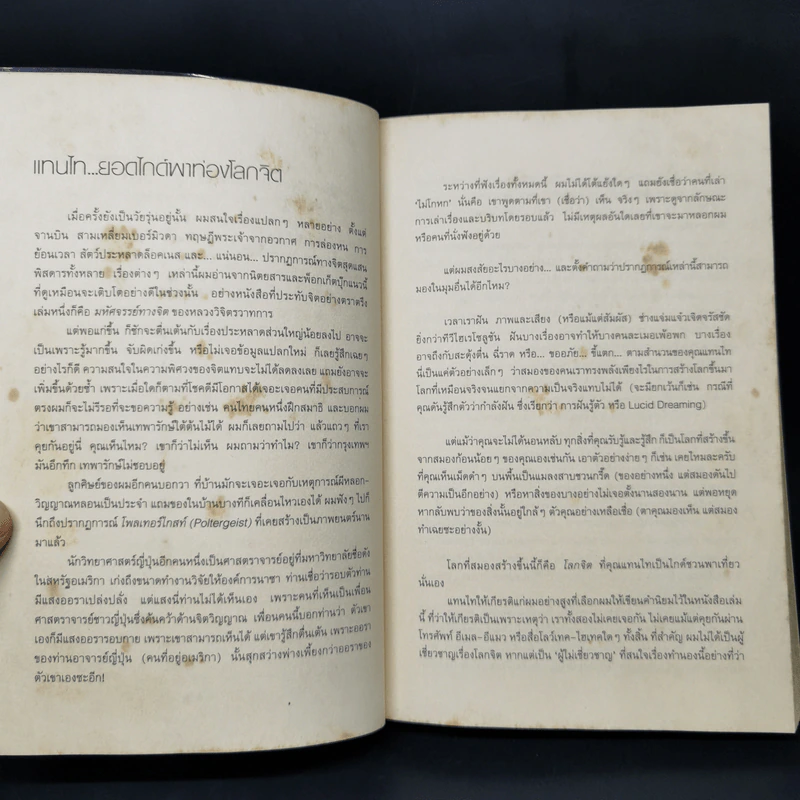 แทนไท...ยอดไกด์พาท่องโลกจิต
เมื่อครั้งยังเป็นวัยรุ่นอยู่นั้น ผมสนใจเรื่องแปลกๆ หลายอย่าง ตั้งแต่
จานบิน สามเหลี่ยมเบอร์มิวดา ทฤษฎีพระเจ้าจากอวกาศ การล่องหน การ
ย้อนเวลา สัตว์ประหลาดล็อคเนส และ... แน่นอน... ปรากฏการณ์ทางจิตสุดแสน
พิสดารทั้งหลาย เรื่องต่างๆ เหล่านี้ผมอ่านจากนิตยสารและพ็อกเก็ตบุ๊กแนวนี้
ที่ดูเหมือนจะเติบโตอย่างดีในช่วงนั้น อย่างหนังสือที่ประทับจิตอย่างตราตรึง
เล่มหนึ่งก็คือ มหัศจรรย์ทางจิต ของหลวงวิจิตรวาทการ
แต่พอแก่ขึ้น ก็ชักจะตื่นเต้นกับเรื่องประหลาดส่วนใหญ่น้อยลงไป อาจจะ
เป็นเพราะรู้มากขึ้น จับผิดเก่งขึ้น หรือไม่เจอข้อมูลแปลกใหม่ ก็เลยรู้สึกเฉยๆ
อย่างไรก็ดี ความสนใจในความพิศวงของจิตแทบไม่ได้ลดลงเลย แถมยังอาจจะ
เพิ่มขึ้นด้วยซ้ำ เพราะเมื่อใดก็ตามที่โชคดีมีโอกาสได้เจอะเจอคนที่มีประสบการณ์
ตรงผมก็จะไม่รีรอที่จะขอความรู้ อย่างเช่น คนไทยคนหนึ่งฝึกสมาธิ และบอกผม
ว่าเขาสามารถมองเห็นเทพารักษ์ใต้ต้นไม้ได้ ผมก็เลยถามไปว่า แล้วแถวๆ ที่เรา
คุยกันอยู่นี่ คุณเห็นไหม? เขาก็ว่าไม่เห็น ผมถามว่าทำไม? เขาก็ว่ากรุงเทพฯ
มันอึกทึก เทพารักษ์ไม่ชอบอยู่
ลูกศิษย์ของผมอีกคนบอกว่า ที่บ้านมักจะเจอะเจอกับเหตุการณ์ผีหลอก-
วิญญาณหลอนเป็นประจำ แถมของในบ้านบางทีก็เคลื่อนไหวเองได้ ผมฟังๆ ไปก็
นึกถึงปรากฏการณ์ โพลเทอร์ไกสท์ (Poltergeist) ที่เคยสร้างเป็นภาพยนตร์นาน
มาแล้ว
นักวิทยาศาสตร์ญี่ปุ่นอีกคนหนึ่งเป็นศาสตราจารย์อยู่ที่มหาวิทยาลัยชื่อดัง
ในสหรัฐอเมริกา เก่งถึงขนาดทำงานวิจัยให้องค์การนาซา ท่านเชื่อว่ารอบตัวท่าน
มีแสงออราเปล่งปลั่ง แต่แสงนี้ท่านไม่ได้เห็นเอง เพราะคนที่เห็นเป็นเพื่อน
ศาสตราจารย์ชาวญี่ปุ่นซึ่งค้นคว้าด้านจิตวิญญาณ เพื่อนคนนี้บอกท่านว่า ตัวเขา
เองก็มีแสงออรารอบกาย เพราะเขาสามารถเห็นได้ แต่เขารู้สึกตื่นเต้น เพราะออรา
ของท่านอาจารย์ญี่ปุ่น (คนที่อยู่อเมริกา) นั้นสุกสว่างพ่างเพี้ยงกว่าออราของ
ตัวเขาเองซะอีก!
ระหว่างที่ฟังเรื่องทั้งหมดนี้ ผมไม่ได้โต้แย้งใดๆ แถมยังเชื่อว่าคนที่เล่า
'ไม่โกหก' นั่นคือ เขาพูดตามที่เขา (เชื่อว่า) เห็น จริงๆ เพราะดูจากลักษณะ
การเล่าเรื่องและบริบทโดยรอบแล้ว ไม่มีเหตุผลอันใดเลยที่เขาจะมาหลอกผม
หรือคนที่นั่งฟังอยู่ด้วย
แต่ผมสงสัยอะไรบางอย่าง... และตั้งคำถามว่าปรากฏการณ์เหล่านี้สามารถ
มองในมุมอื่นได้อีกไหม?
เวลาเราฝัน ภาพและเสียง (หรือแม้แต่สัมผัส) ช่างแจ่มแจ้วเจิดจรัสชัด
ยิ่งกว่าทีวีไฮเรโซลูชัน ฝันบางเรื่องอาจทำให้บางคนละเมอเพ้อพก บางเรื่อง
อาจถึงกับสะดุ้งตื่น ฉี่ราด หรือ... ขออภัย... ขี้แตก... ตามสำนวนของคุณแทนไท
นี่เป็นแค่ตัวอย่างเล็กๆ ว่าสมองของคนเราทรงพลังเพียงไรในการสร้างโลกขึ้นมา
โลกที่เหมือนจริงจนแยกจากความเป็นจริงแทบไม่ได้ (จะมียกเว้นก็เช่น กรณีที่
คุณดันรู้สึกตัวว่ากำลังฝัน ซึ่งเรียกว่า การฝันรู้ตัว หรือ Lucid Dreaming)
แต่แม้ว่าคุณจะไม่ได้นอนหลับ ทุกสิ่งที่คุณรับรู้และรู้สึก ก็เป็นโลกที่สร้างขึ้น
จากสมองก้อนน้อยๆ ของคุณเองเช่นกัน เอาตัวอย่างง่ายๆ ก็เช่น เคยไหมละครับ
ที่คุณเห็นเม็ดดำๆ บนพื้นเป็นแมลงสาบชวนกรี๊ด (ของอย่างหนึ่ง แต่สมองดันไป
ตีความเป็นอีกอย่าง) หรือหาสิ่งของบางอย่างไม่เจอตั้งนานสองนาน แต่พอหยุด
หากลับพบว่าของสิ่งนั้นอยู่ใกล้ๆ ตัวคุณอย่างเหลือเชื่อ (ตาคุณมองเห็น แต่สมอง
ทำเฉยซะอย่างงั้น)
โลกที่สมองสร้างขึ้นนี้ก็คือ โลกจิต ที่คุณแทนไทเป็นไกด์ชวนพาเที่ยว
นั่นเอง
แทนไทให้เกียรติแก่ผมอย่างสูงที่เลือกผมให้เขียนคำนิยมไว้ในหนังสือเล่ม
นี้ ที่ว่าให้เกียรติเป็นเพราะเหตุว่า เราทั้งสองไม่เคยเจอกัน ไม่เคยแม้แต่คุยกันผ่าน
โทรศัพท์ อีเมล-อีแมว หรือสื่อโลว์เทค-ไฮเทคใดๆ ทั้งสิ้น ที่สำคัญ ผมไม่ได้เป็นผู้
เชี่ยวชาญเรื่องโลกจิต หากแต่เป็น 'ผู้ไม่เชี่ยวชาญ' ที่สนใจเรื่องทำนองนี้อย่างที่ว่า